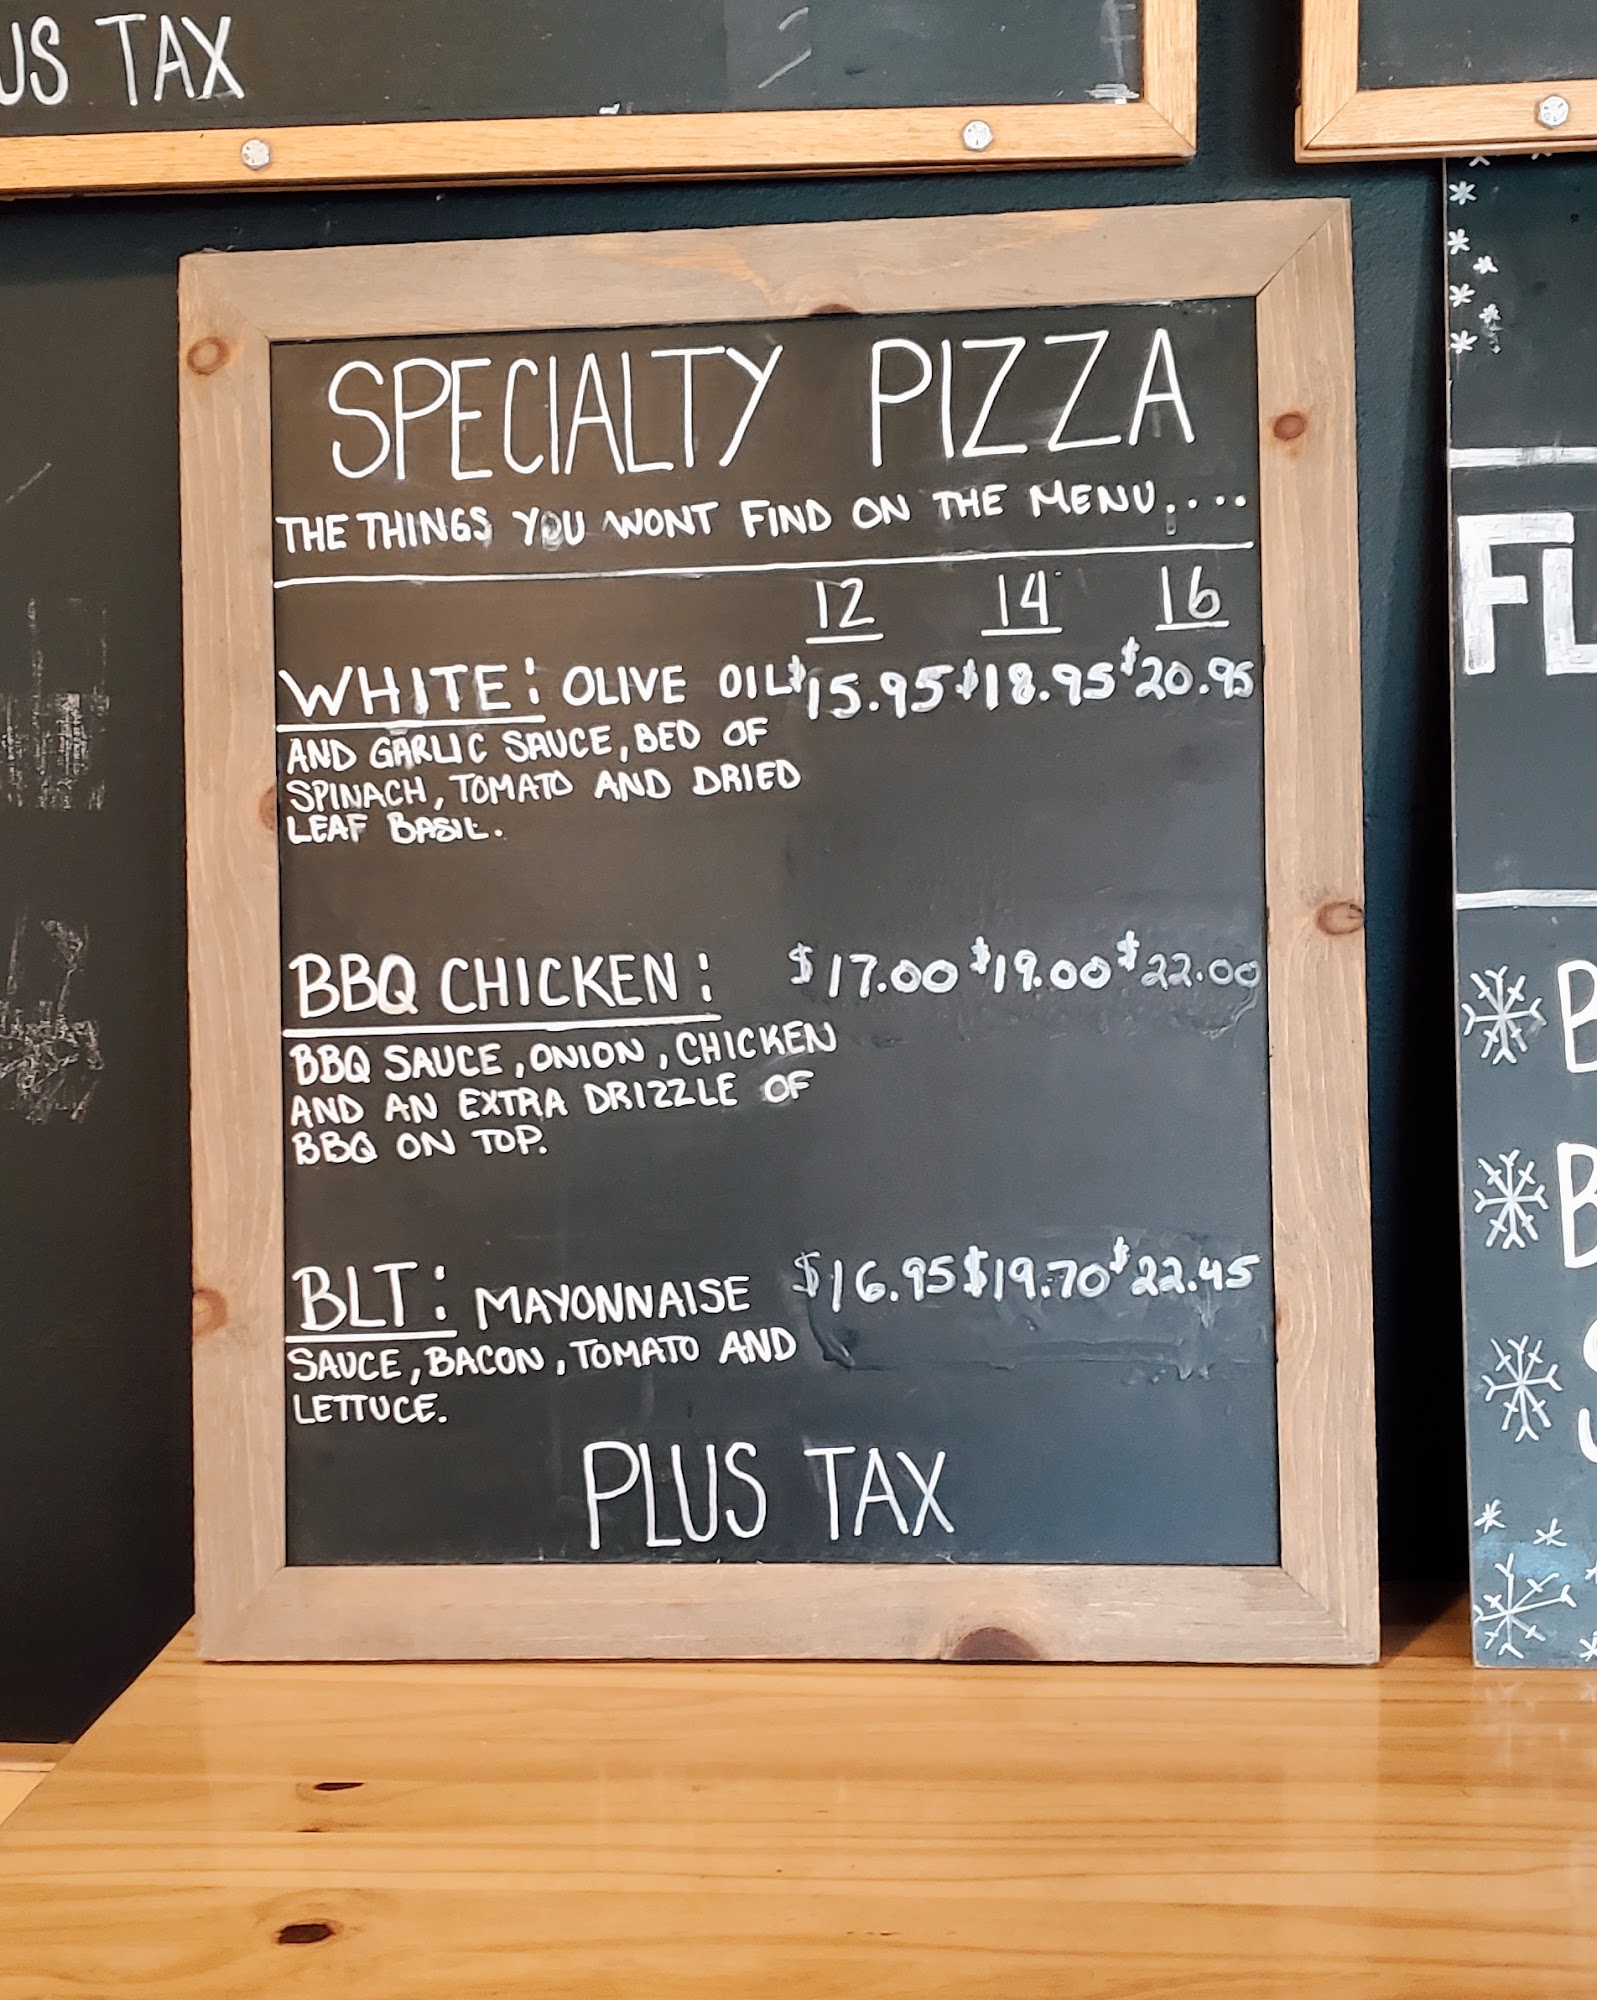 US TAX
SPECIALTY PIZZA
THE THINGS YOU WONT FIND ON THE MENU....
12 14 16
WHITE: OLIVE OIL $15.95 $18.95 $20.95
AND GARLIC SAUCE, BED OF
SPINACH, TOMATO AND DRIED
LEAF BASIL.
BBQ CHICKEN: $17.00 $19.00 $22.00
BBQ SAUCE, ONION, CHICKEN
AND AN EXTRA DRIZZLE OF
BBQ ON TOP.
BLT: MAYONNAISE $16.95 $19.70 $22.45
SAUCE, BACON, TOMATO AND
LETTUCE.
PLUS TAX
FL
B
B